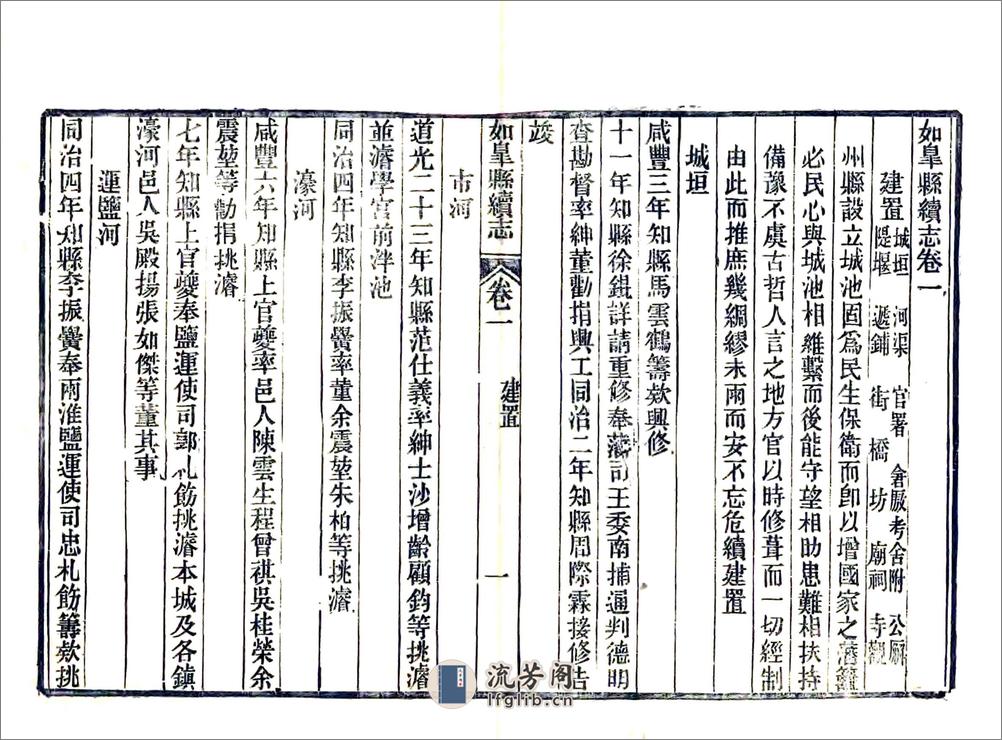 如臯縣續志卷一
建置 城垣 河渠 官署 倉廒考舍附 公廨
隄堰 遞鋪 街 橋 坊 廟祠 寺觀
州縣設立城池固爲民生保衛而卽以增國家之藩籬
必民心與城池相維繫而後能守望相助患難相扶持
備豫不虞古哲人言之地方官以時修葺而一切經制
由此而推庶幾綢繆未雨而安不忘危續建置
城垣
咸豐三年知縣馬雲鶴籌欵興修
十一年知縣徐錕詳請重修奉藩司王委南捕通判德明
查勘督率紳董勸捐興工同治二年知縣周際霖接修吿
竣
如臯縣續志 卷一 建置 一
市河
道光二十三年知縣范仕義率紳士沙增齡顧鈞等挑濬
並濬學宮前泮池
同治四年知縣李振黌率董余震堃朱柏等挑濬
濠河
咸豐六年知縣上官夔率邑人陳雲生程曾祺吳桂榮余
震堃等勸捐挑濬
七年知縣上官夔奉鹽運使司郭札飭挑濬本城及各鎮
濠河邑人吳殿揚張如傑等董其事
運鹽河
同治四年知縣李振黌奉兩淮鹽運使司忠札飭籌欵挑
流芳阁
lfglib.cn